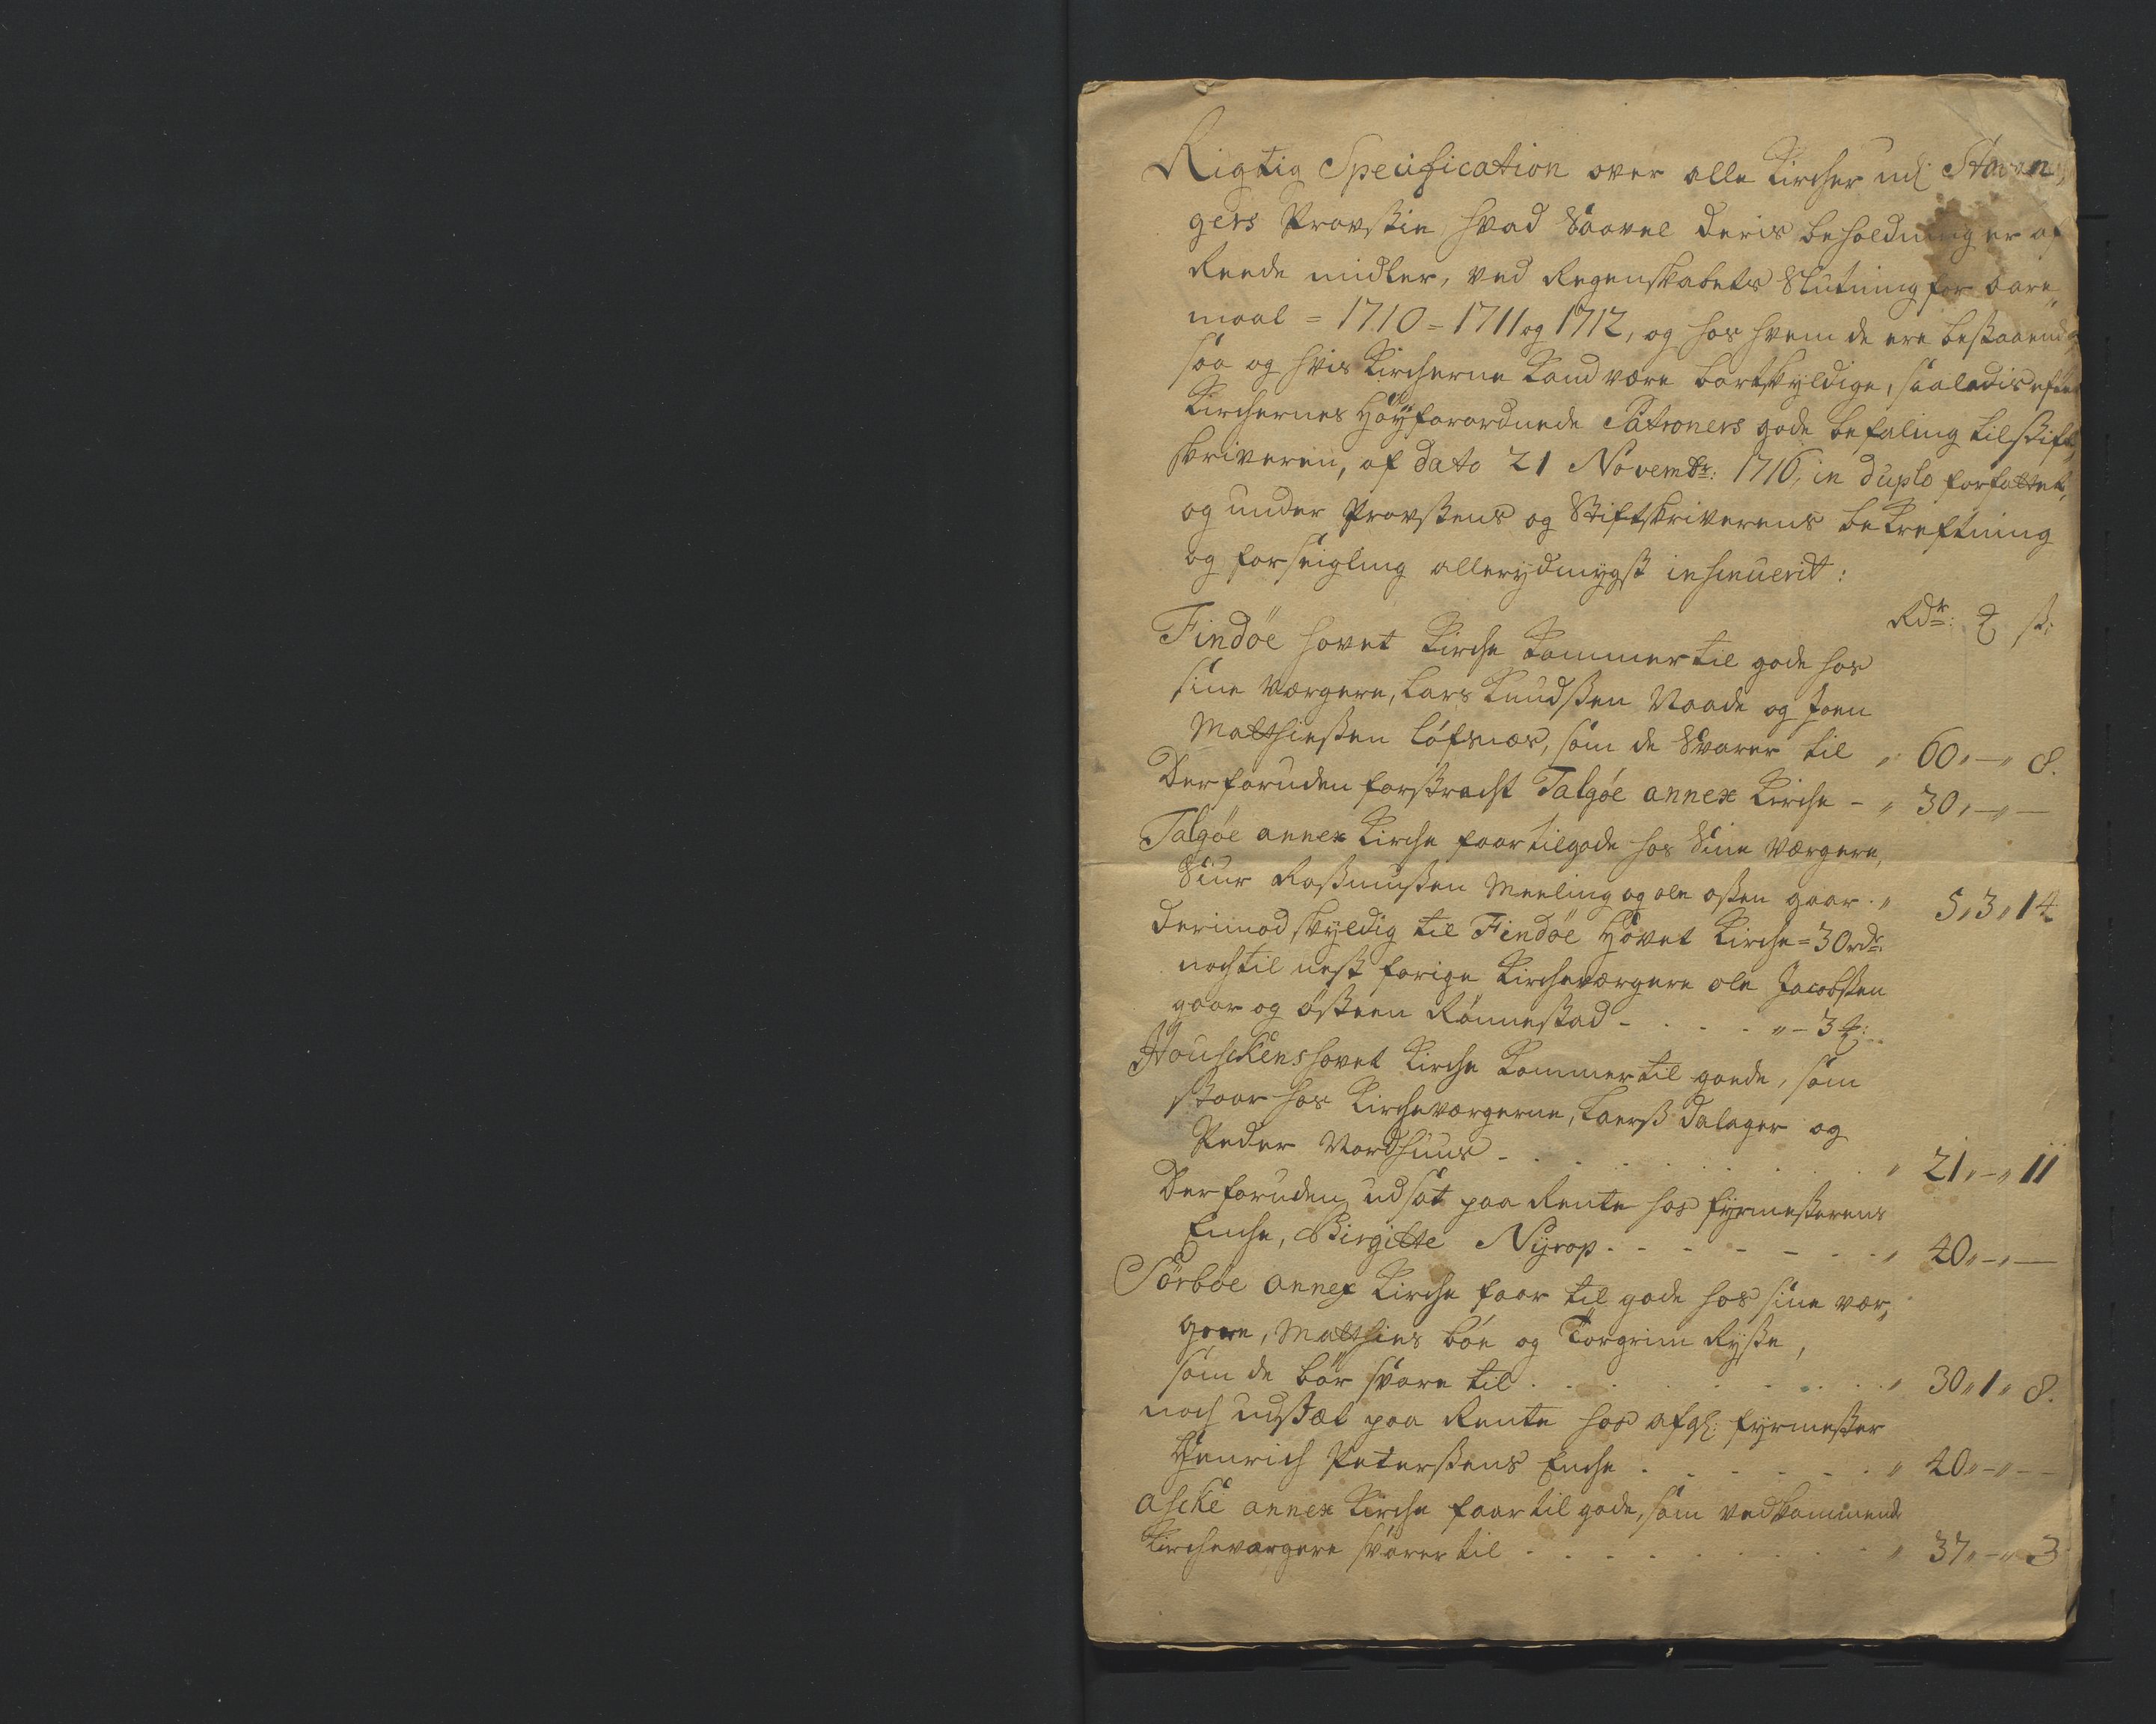 Rigtig Specification over alle Kircher udj Stavan,
gers Provstie, hvad Saavel deris beholdninger af
Reede midler, ved Regenskabets Slutning for aare,
maal = 1710 = 1711 og 1712, og hos hvem de ere bestaaende,
saa og hvis Kircherne Kand være bortskyldige, saaledis efter
Kirchernes Høyforordnede Patroners gode befaling til Stift,
skriveren, af dato 21 Novembr: 1716, in duplo forfattet,
og under Provstens og Stiftskriverens bekreftning
og forseigling allerydmygst insinuerit:
Rdr: ß:
Findöe hovet Kirche Kommer til gode hos
sine værgere, Lars Knudssen Vaade og Joen
Matthiessen Löfnæs, som de Svarer til „ 60„ – „ 8.
Der foruden forstracht Talgöe annex Kirche – „ 30„ – „ –
Talgöe annex Kirche faar tilgode hos Sine værgere,
Siur Rasmussen Meeling og ole ossen gaar . „ 5„ 3„ 14
Derimod skyldig til Findöe Hovet Kirche = 30 rdr:
noch til nest forige Kircheværgere ole Jacobssen
gaar og östeen Rönnestad – . . . „ – 3
Houschens hovet Kirche Kommer til goede, som
staar hos Kircheværgerne, Laerss Dalager og
Peder Nordhuus – . . . . . . . „ 21„ – „ 11
Der foruden udsat paa Rente hos fyrmesterens
Enche, Birgitte Nyrop . . – – – – . . „ 40„ – „ –
Sörböe annex Kirche faar til gode hos sine vær,
gere, Matthies böe og Torgrim Rysse,
som de bör svare til . . . . . . . . „ 30„ 1„ 8.
noch udsat paa Rente hos afgl: fyrmester
Henrich Peterssens Enche . . – . – . . „ 40„ – „ – –
Aske annex Kirche faar til gode, som vedkommende
Kircheværgere svarer til . . . . . . . . „ 37„ – „ 3